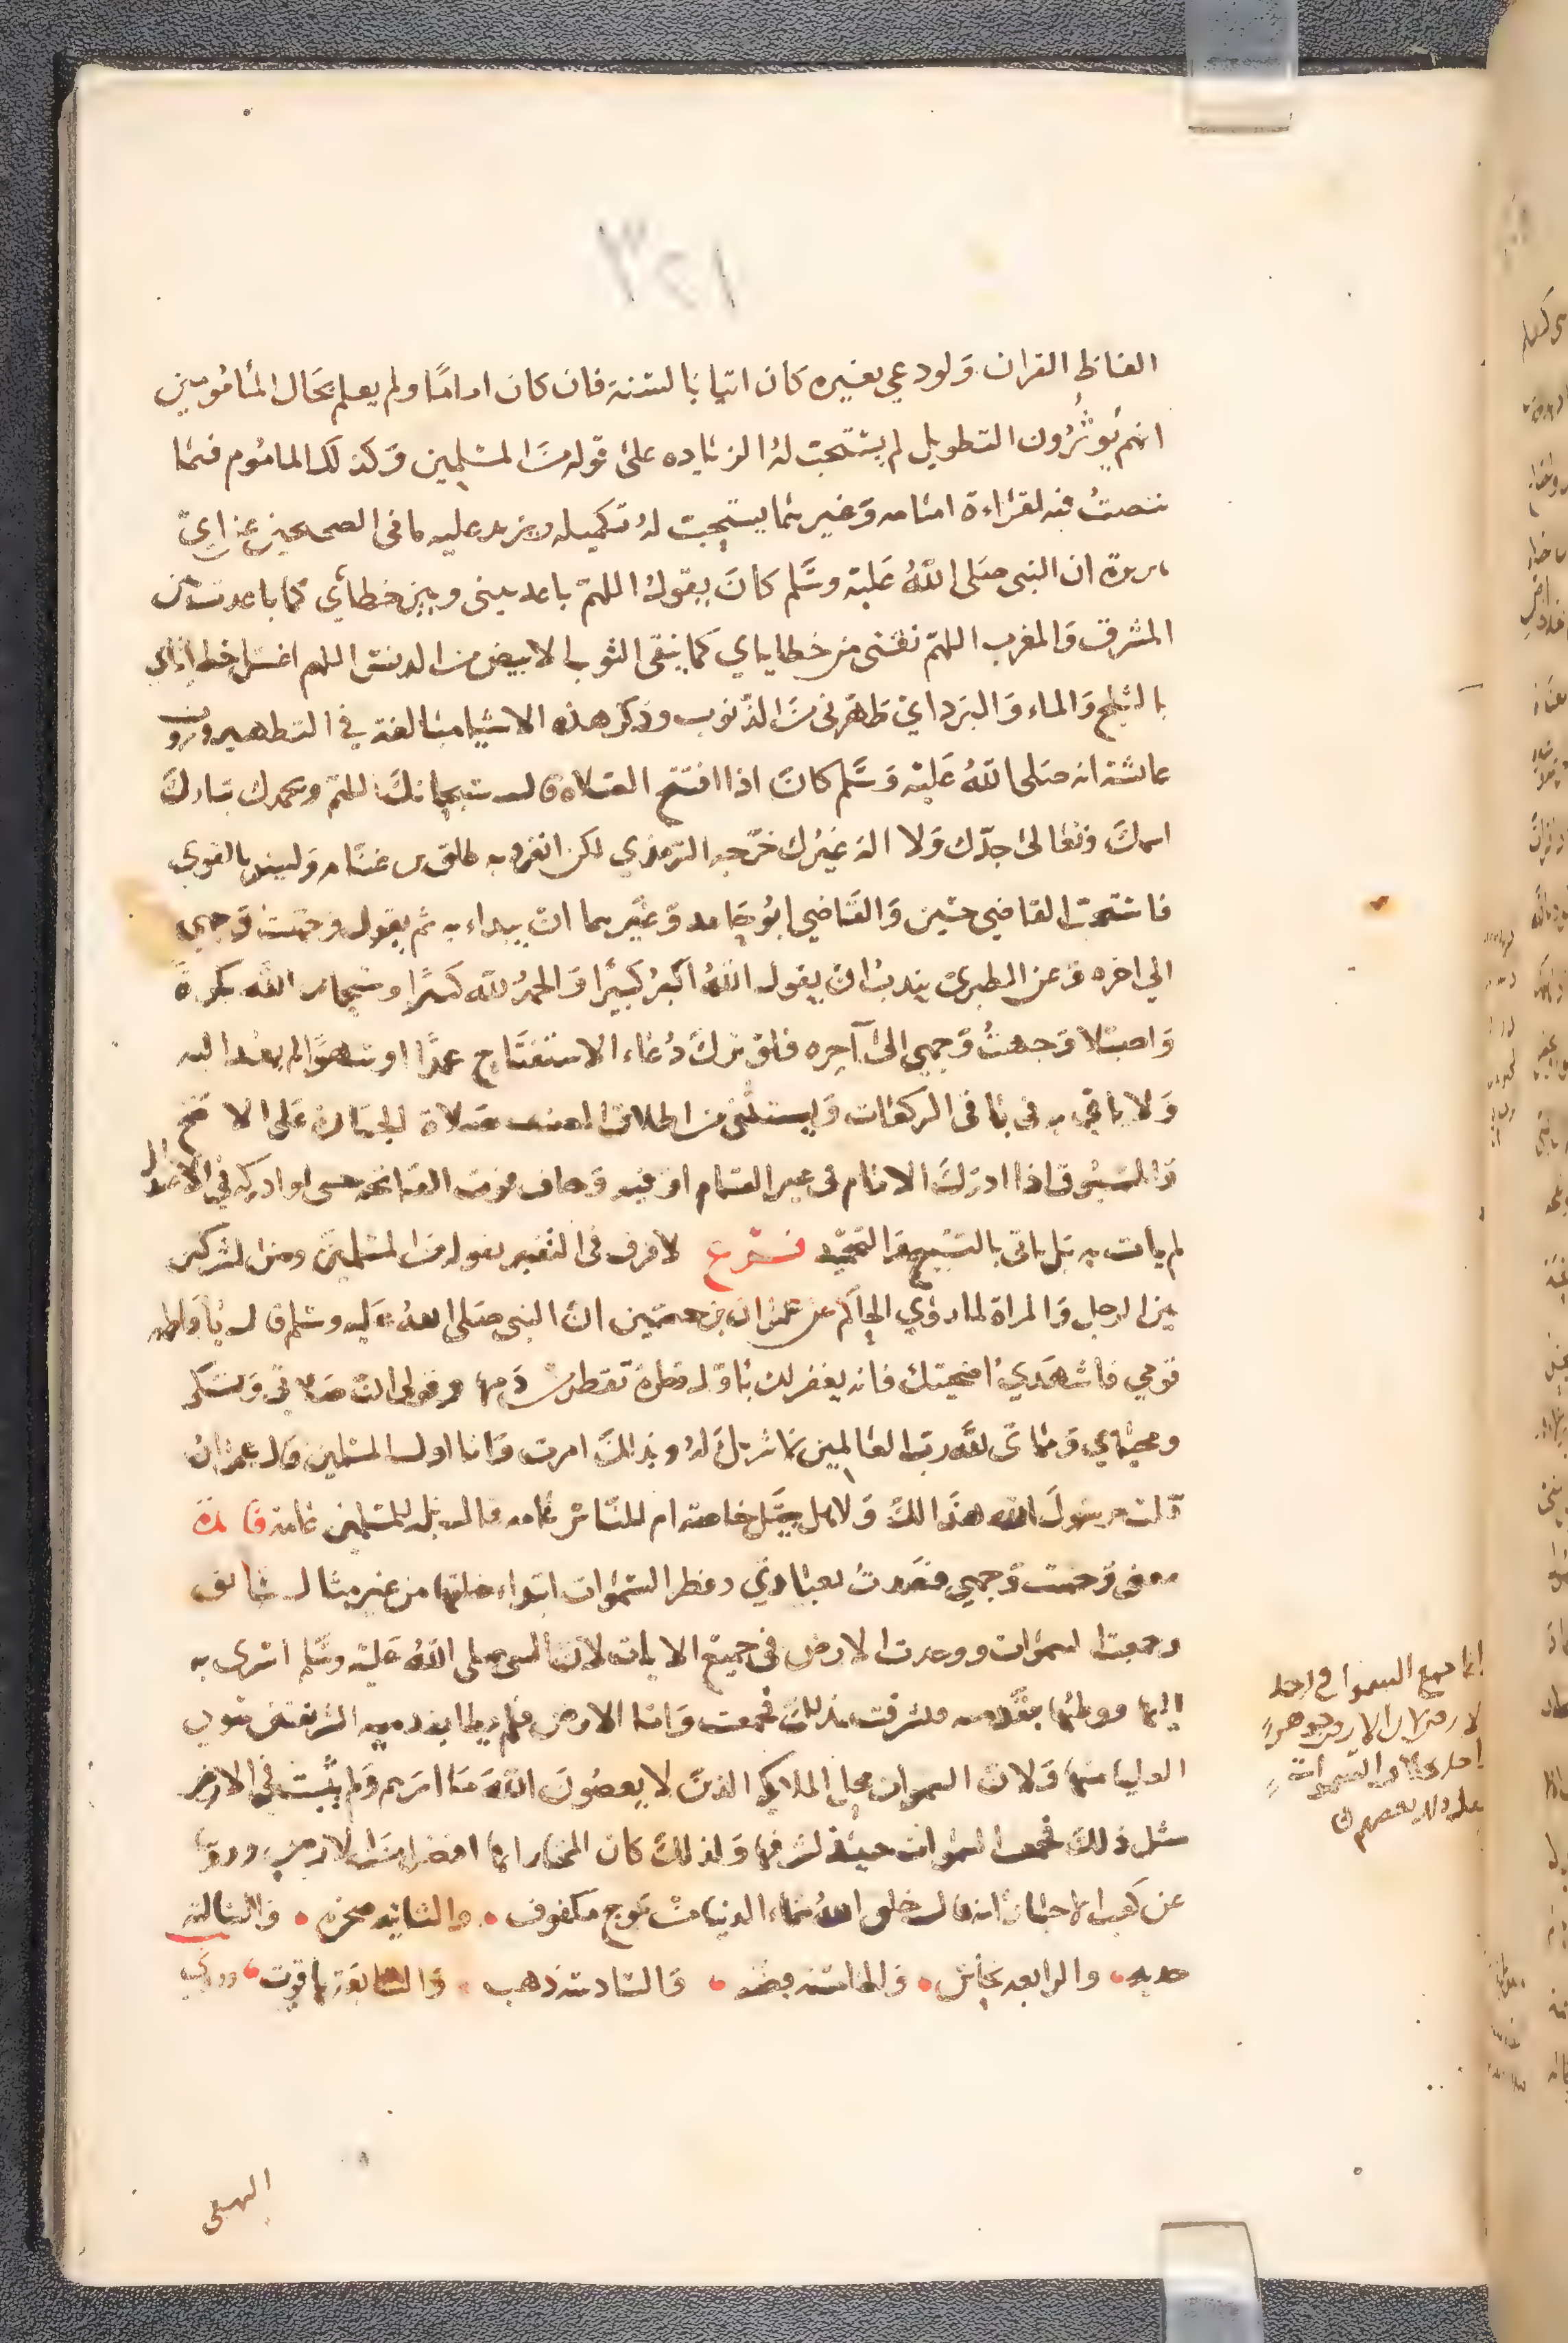 ١٢٣
الفاظ القران ولو دعي بغيره كان اتيا بالسنة فان كان اماما ولم يعلم بحال المأمومين
انهم يؤثرون التطويل لم يستحب له الزياده على قوله من المسلمين وكذلك الماموم فيما
ينصت فيه لقراءة امامه وغيرهما يستحب له تكميله ويزيد عليه ما في الصحيحين عن ابي
هريرة ان النبي صلى الله عليه وسلم كان يقول اللهم باعد بيني وبين خطاي كما باعدت بين
المشرق والمغرب اللهم نقني من خطاياي كما ينقى الثوب الابيض من الدنس اللهم اغسل خطاياي
بالثلج والماء والبرد اي طهرني من الذنوب وذكر هذه الاشيا مبالغة في التطهير وروت
عائشة انه صلى الله عليه وسلم كان اذا افتتح الصلاة قال سبحانك اللهم وبحمدك تبارك
اسمك وتعالى جدك ولا اله غيرك خرجه الترمذي لكن انفرد به طلق بن غنام وليس بالقوي
فاستحب القاضي حسين والقاضي ابو حامد وغيرهما ان يبداء به ثم يقول وجهت وجهي
الي اخره وعن الطبري يندب ان يقول الله اكبر كبيرا والحمد لله كثيرا وسبحان الله بكرة
واصيلا وجهت وجهي الى آخره فلو ترك دعاء الاستفتاح عمدا او سهوا لم يعد اليه
ولا ياتي به في باقي الركعات ويستثنى من اطلاق المصنف صلاة الجنازة على الاصح
والمسبوق اذا ادرك الامام في غير القيام او فيه وخاف فوت الفاتحة حتى لو ادركه في الاعتدال
لم يات به بل ياتي بالتسبيح والتحميد فرع لا فرق في التعبير بقوله من المسلمين ومن المشركين
بين الرجل والمراة لما روي الحاكم عن عمران بن حصين ان النبي صلى الله عليه وسلم قال يا فاطمه
قومي فاشهدي اضحيتك فانه يغفر لك باول قطرة تقطر من دمها وقولي ان صلاتي ونسكي
ومحياي ومماتي لله رب العالمين لا شريك له وبذلك امرت وانا اول المسلمين قال عمران
قلت يرسول الله هذا لك ولاهل بيتك خاصة ام للناس عامه قال بل للمسلمين عامة فائدة
معنى وجهت وجهي قصدت بعبادتي وفطر السموات ابتداء خلقها من غير مثال سابق
وجمعت السموات ووحدت الارض في جميع الايات لان النبي صلى الله عليه وسلم اسرى به
اليها ووطئها بقدمه فشرفت بذلك فجمعت واما الارض فلم يطا بقدميه الشريفتين سوى
العليا منها ولان السموات محل الملايكه الذين لا يعصون الله ما امرهم ولم يثبت في الارض
مثل ذلك فجمعت السموات حينئذ لشرفها ولذلك كان المختار انها افضل من الارض وروينا
عن كعب الاحبار انه قال خلق الله سماء الدنيا من موج مكفوف والثانيه صخره والثالثه
حديد والرابعه نحاس والخامسة فضه والسادسة ذهب والسابعة ياقوت وروي
البيهقي
انما جمع السموات واحد
لارض لان الارض جوهر